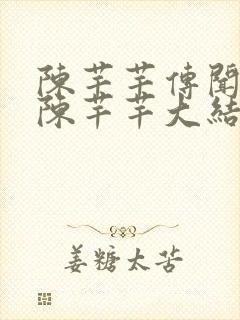 陳芊芊傳聞
陳芊芊大結
姜糖太苦